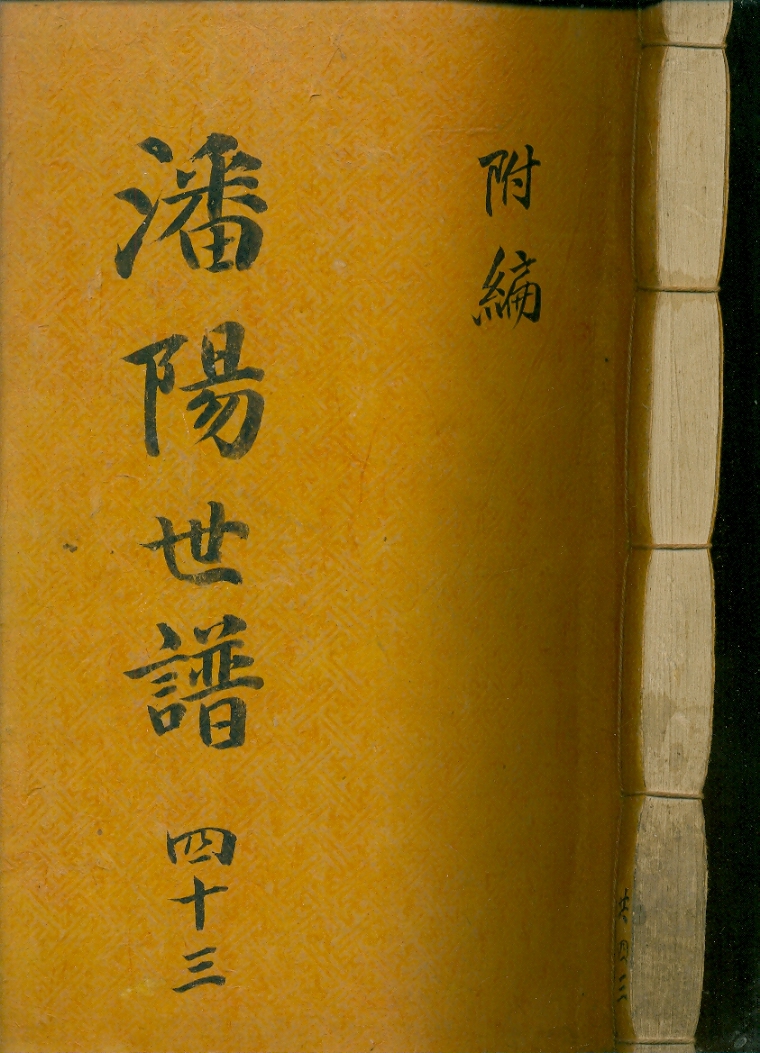 附編
潘陽世譜 四十三